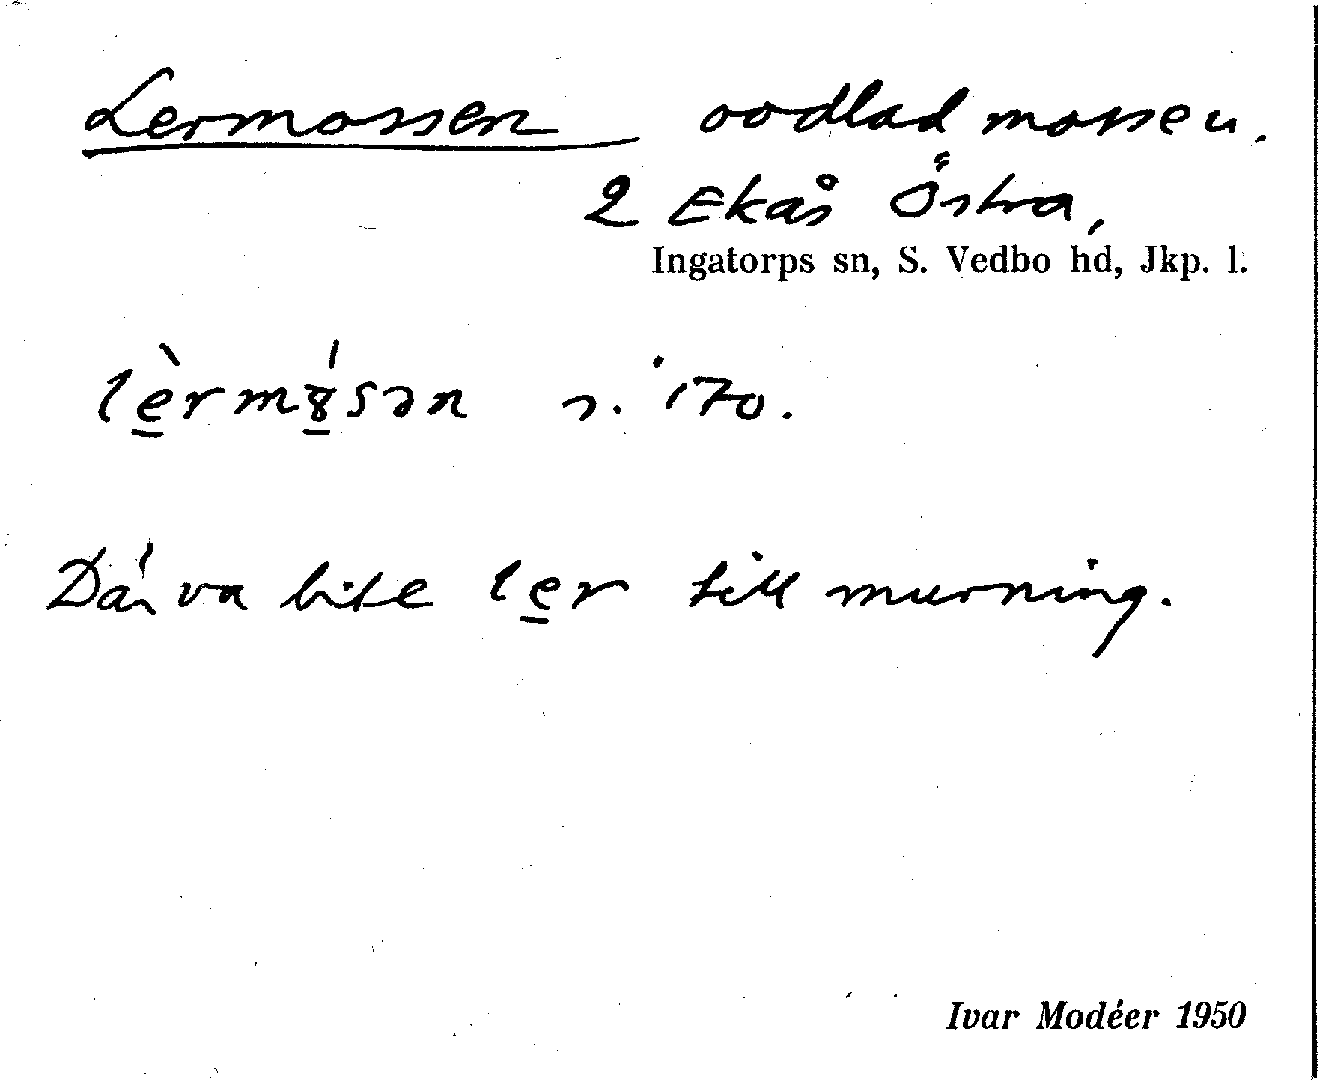 Lermossen oodlad mosse u.
2 Ekås Östra,
Ingatorps sn, S. Vedbo hd, Jkp. l.
lè̠rm8̠́sən s. 170.
Dä va lite le̠r till murning.
Ivar Modéer 1950